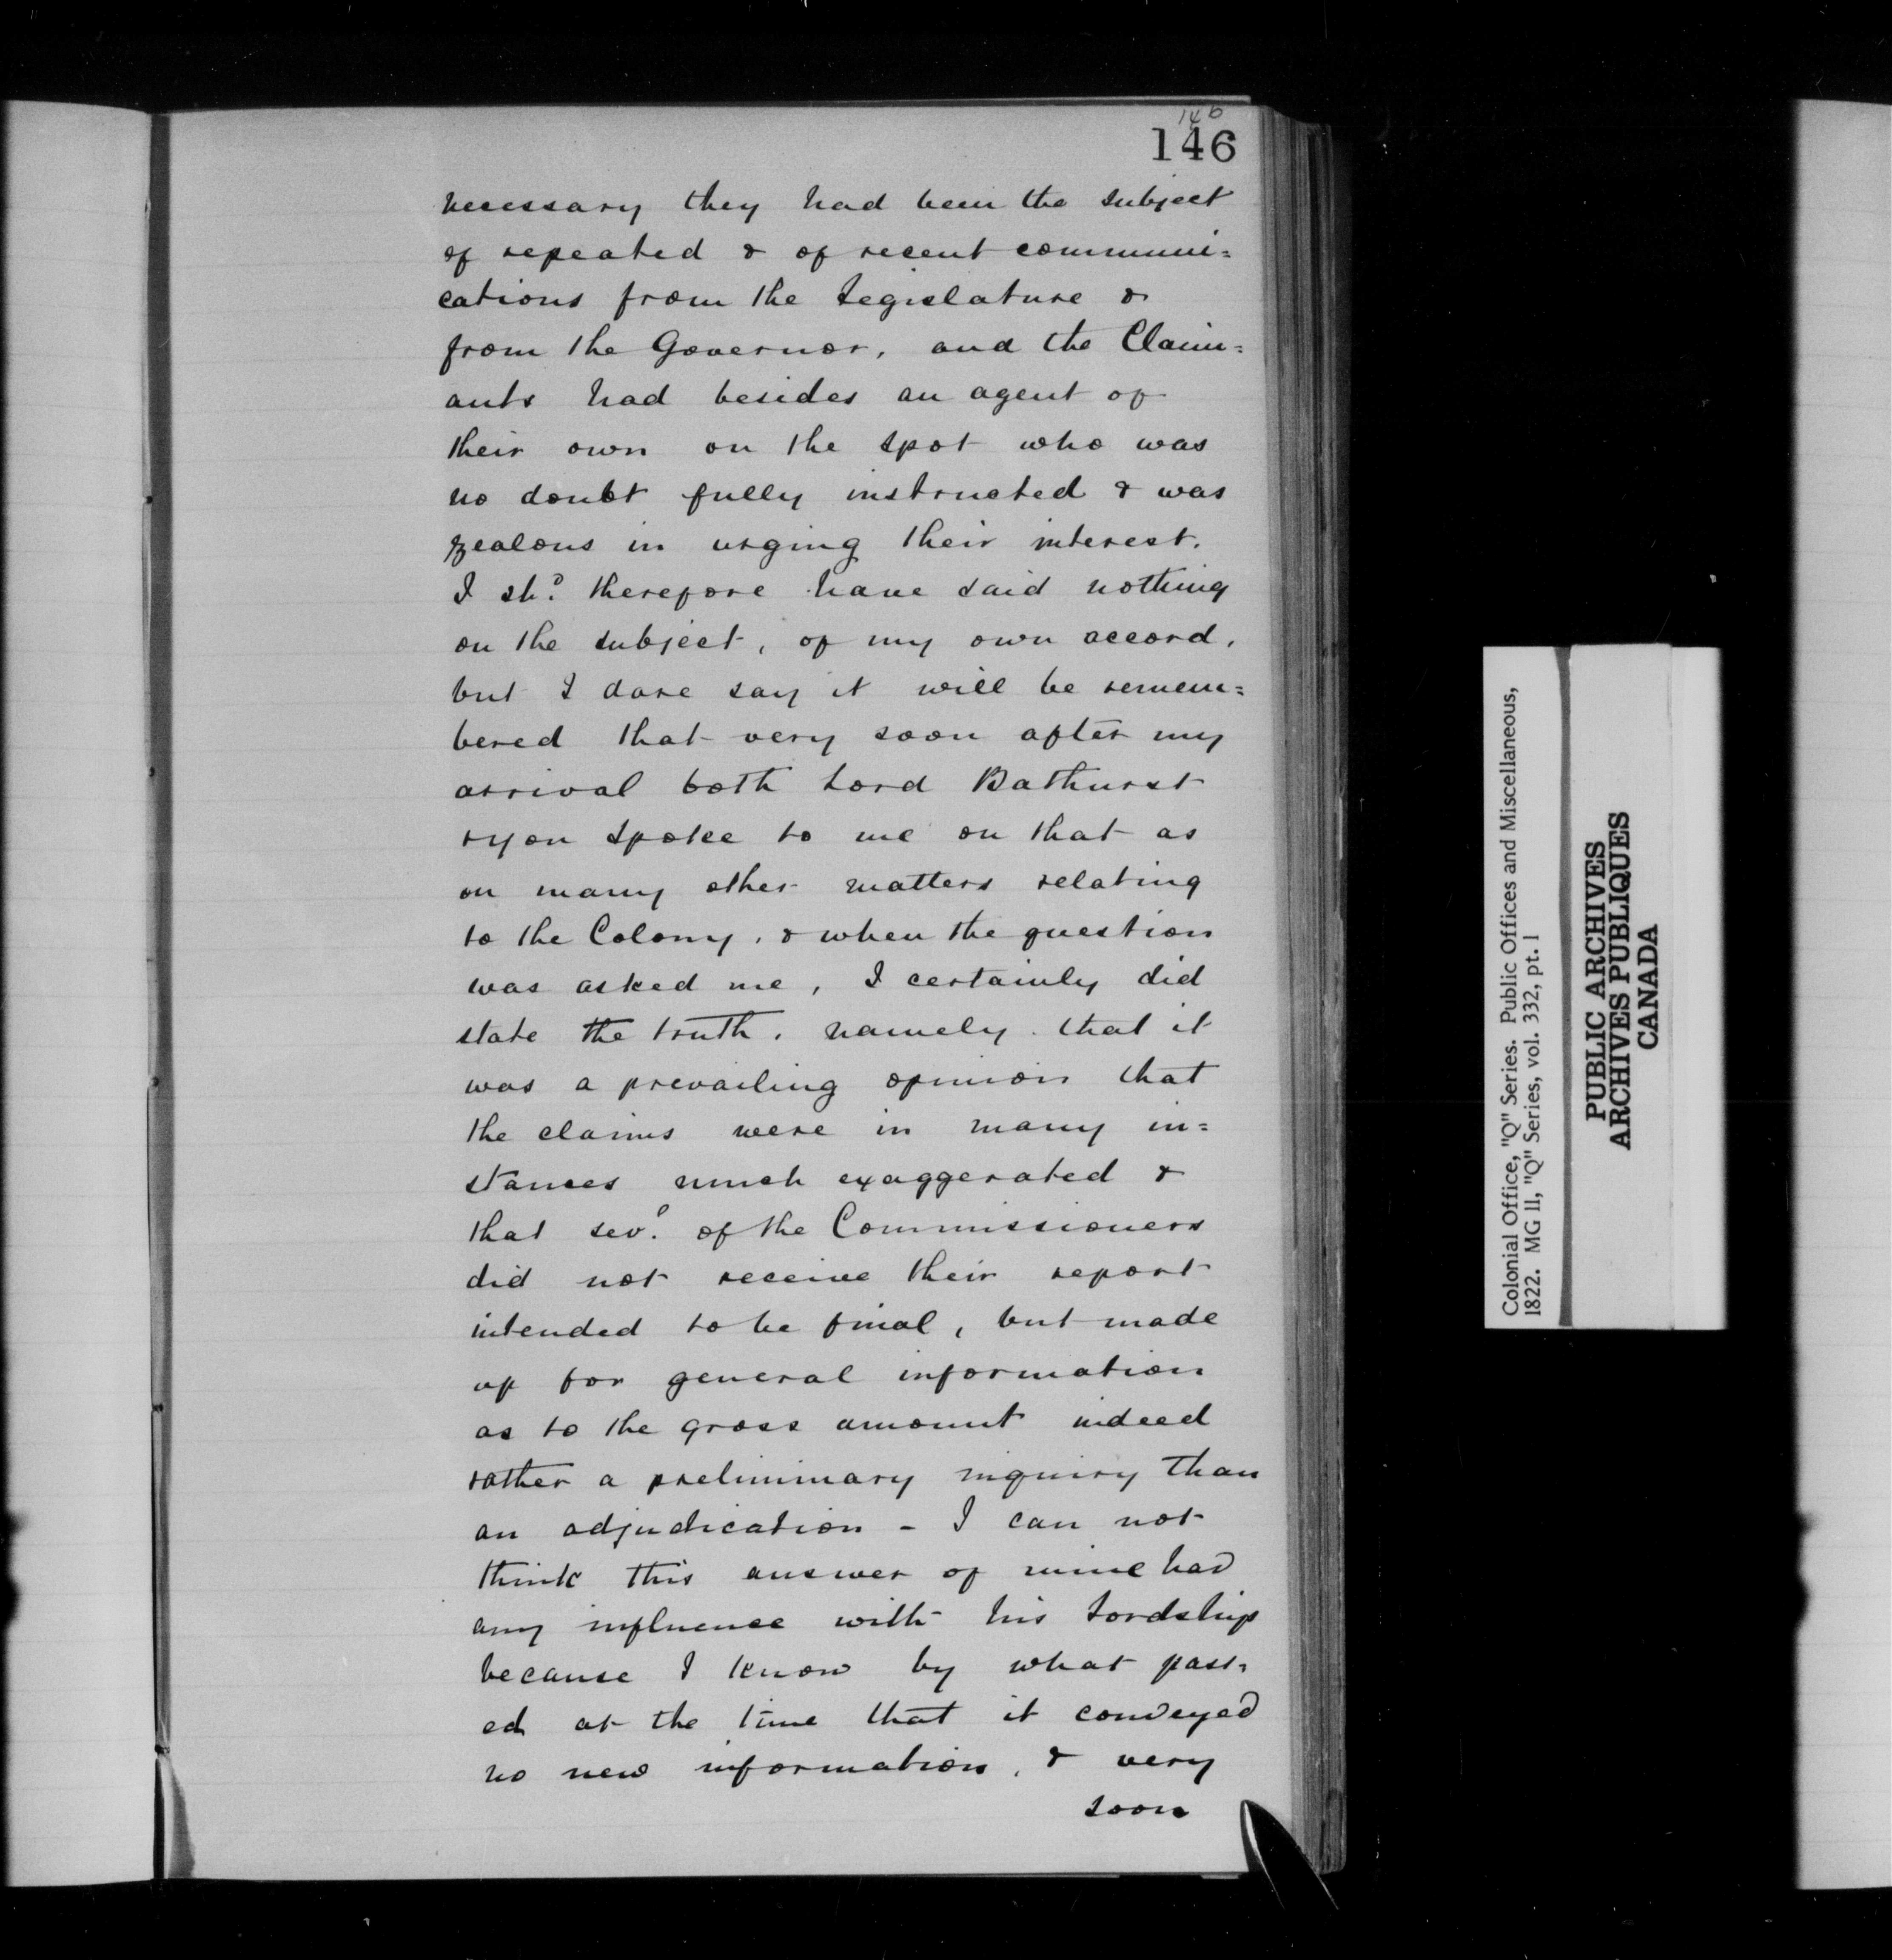 146
146
necessary they had been the subject
of repeated & of recent communi=
cations from the Legislature &
from the Governor, and the Claim=
ants had besides an agent of
their own on the spot who was
no doubt fully instructed & was
zealous in urging their interest.
I shd. therefore have said nothing
on the subject, of my own accord,
but I dare say it will be remem=
bered that very soon after my
arrival both Lord Bathurst
& you spoke to me on that as
on many other matters relating
to the Colony, & when the question
was asked me, I certainly did
state the truth, namely that it
was a prevailing opinion that
the claims were in many in=
stances much exaggerated &
that sevl. of the Commissioners
did not receive their report
intended to be final, but made
up for general information
as to the gross amount indeed
rather a preliminary inquiry than
an adjudication - I can not
think this answer of mine had
any influence with his Lordship
because I know by what pass=
ed at the time that it conveyed
no new information, & very
soon
Colonial Office, "Q" Series. Public Offices and Miscellaneous,
1822. MG 11, "Q" Series, vol. 332, pt. 1
PUBLIC ARCHIVES
ARCHIVES PUBLIQUES
CANADA